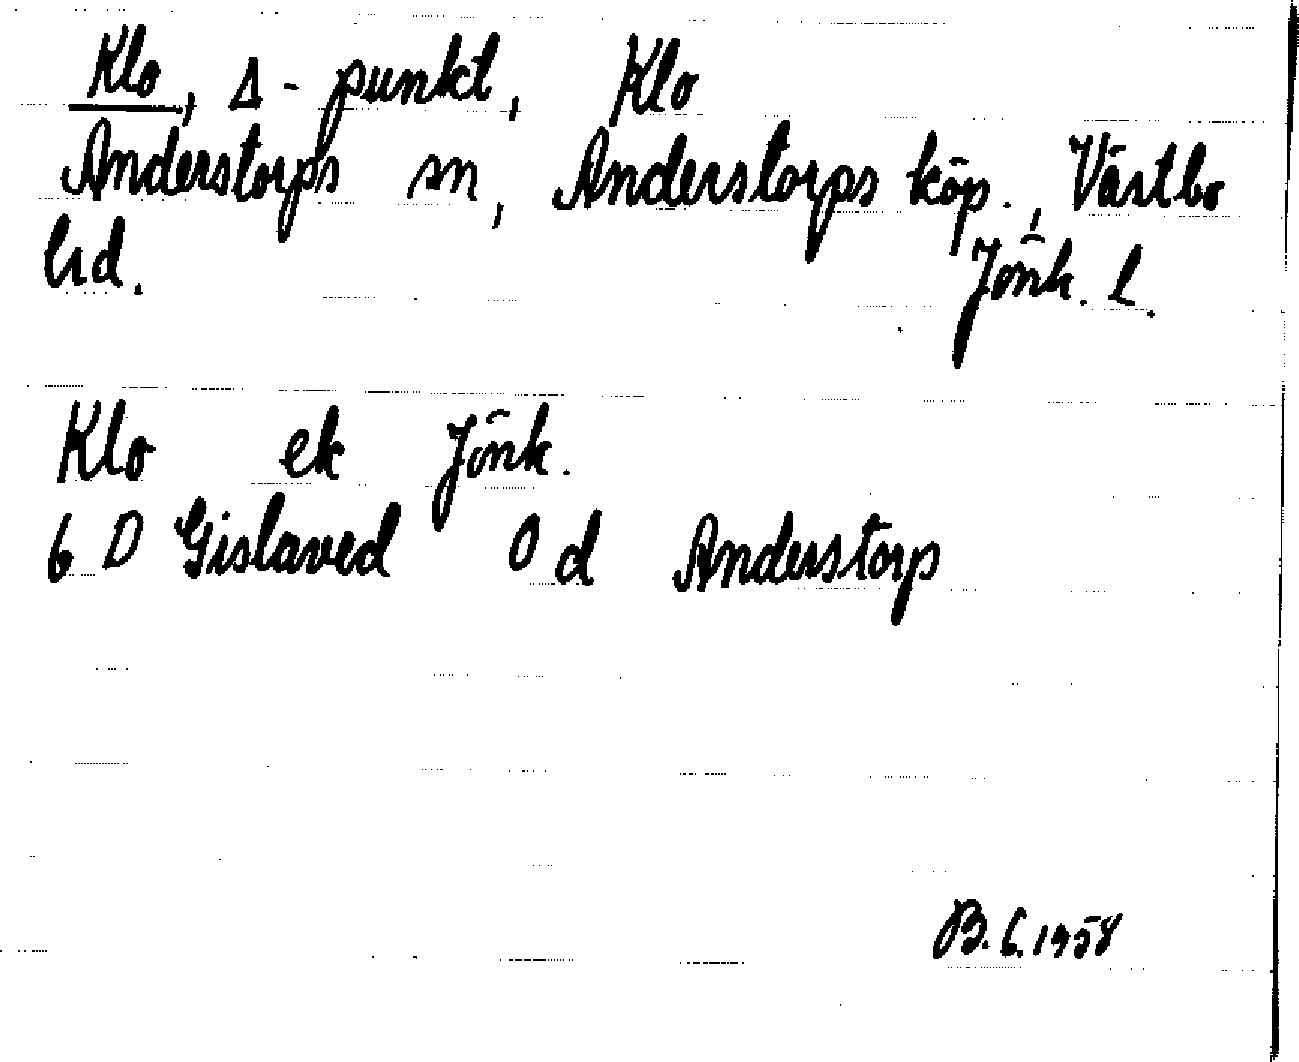 Klo, Δ-punkt, Klo
Anderstorps sn, Anderstorps köp., Västbo
hd. Jönk. l.
Klo ek Jönk.
6 D Gislaved 0 d Anderstorp
B. G. 1958